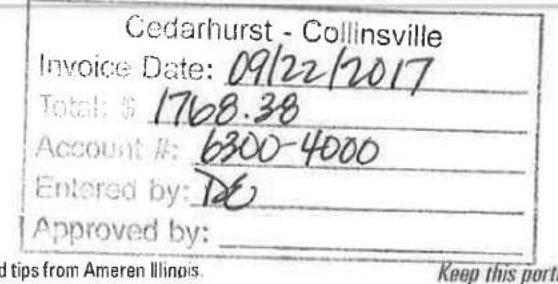 Cedarhurst - Collinsville
Invoice Date: 09/22/2017
Total: $ 1768.38
Account #: 6300-4000
Entered by: DE
Approved by:
d tips from Ameren Illinois.
Keep this porti